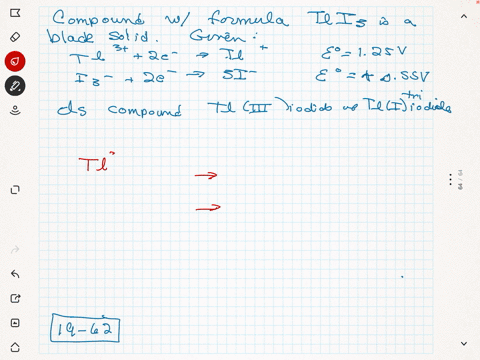 Compound w/ formula TlI3 is a
black solid. Given:
Tl 3+ + 2e- → Tl + ε° = 1.25V
I3- + 2e- → 3I- ε° = + 0.55V
Is compound Tl(III) iodide or Tl(I) tri iodide
Tl 3
→
→
19-62
64 / 64